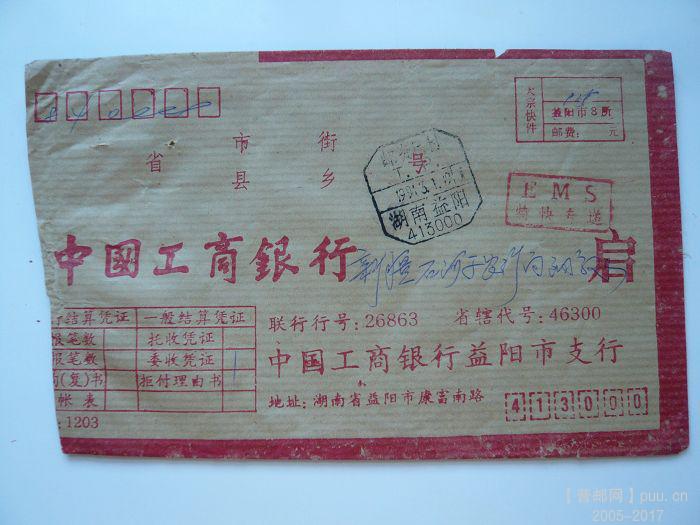 省 市 县 街 乡
大宗快件
益阳市8所
邮费: 元
号
湖南益阳
413000
EMS
特快专递
中國工商銀行
新疆石河子
启
结算凭证 一般结算凭证
报笔数 托收凭证
报笔数 委收凭证 1
(复)书 拒付理由书
帐表
:1203
联行行号:26863 省辖代号:46300
中国工商银行益阳市支行
地址:湖南省益阳市康富南路
413000
【普邮网】puu.cn
2005-2017